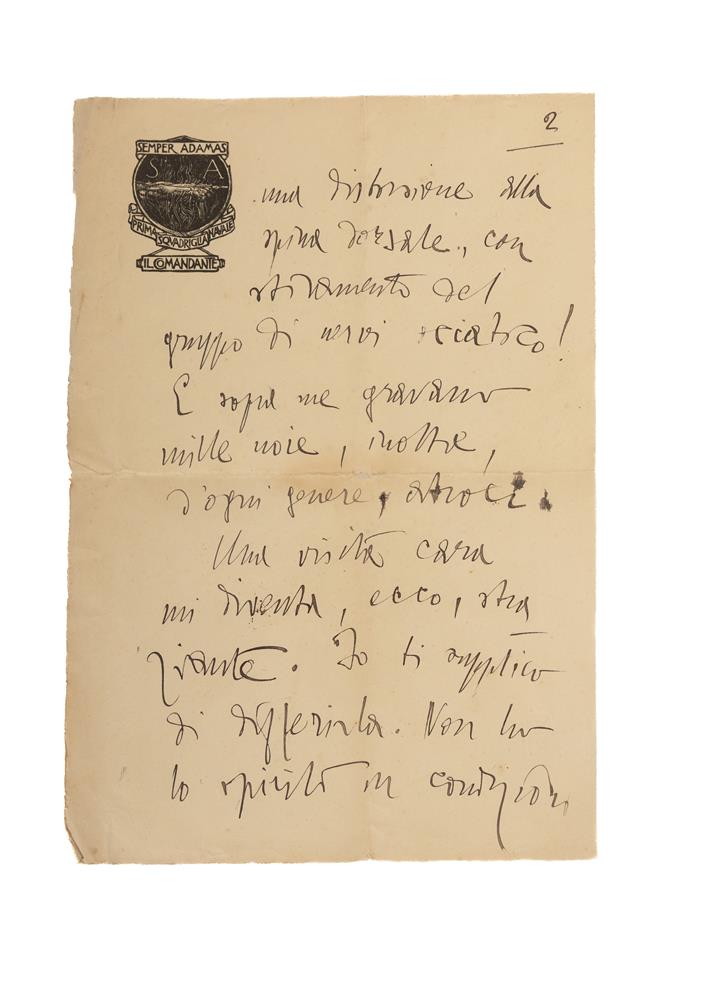 2
SEMPER ADAMAS
S A
PRIMA SQVADRIGLIA NAVALE
IL COMANDANTE
una distorsione alla
spina dorsale, con
stiramento del
gruppo di nervi sciatico!
E sopra me gravano
mille noie, inoltre,
d'ogni genere, atroci.
Una visita cara
mi diventa, ecco, stra
ziante. Io ti supplico
di differirla. Non ho
lo spirito in condizioni